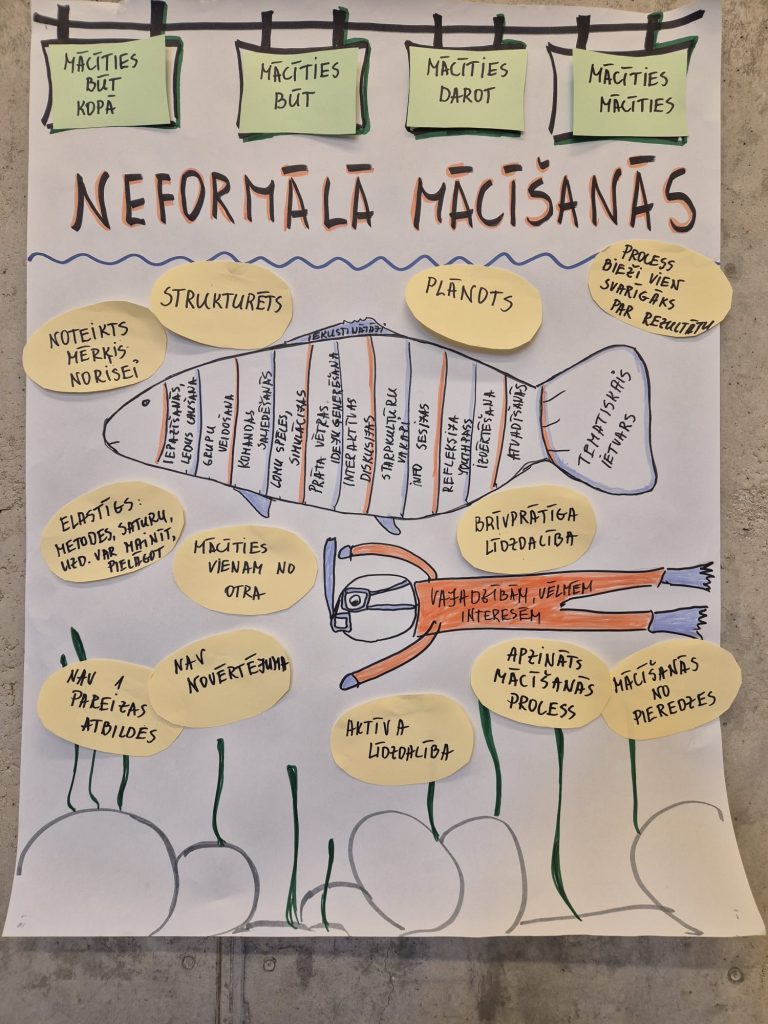 MĀCĪTIES
BŪT
KOPĀ
MĀCĪTIES
BŪT
MĀCĪTIES
DAROT
MĀCĪTIES
MĀCĪTIES
NEFORMĀLĀ MĀCĪŠANĀS
NOTEIKTS
MĒRĶIS
NORISEI
STRUKTURĒTS
PLĀNOTS
PROCESS
BIEŽI VIEN
SVARĪGĀKS
PAR REZULTĀTU
IEKUSTINĀTĀJI
IEPAZĪŠANĀS,
LEDUS LAUŠANA
GRUPU
VEIDOŠANA
KOMANDAS
SALIEDĒŠANĀS
LOMU SPĒLES,
SIMULĀCIJAS
PRĀTA VĒTRAS
IDEJU ĢENERĒŠANA
INTERAKTĪVAS
DISKUSIJAS
STARPKULTŪRU
VAKARI
INFO SESIJAS
REFLEKSIJA
YOUTHPASS
IZVĒRTĒŠANA
ATVADĪŠANĀS
TEMATISKAIS
IETVARS
ELASTĪGS:
METODES, SATURU,
UZD. VAR MAINĪT,
PIELĀGOT
MĀCĪTIES
VIENAM NO
OTRA
BRĪVPRĀTĪGA
LĪDZDALĪBA
VAJADZĪBĀM, VĒLMĒM
INTERESĒM
NAV 1
PAREIZAS
ATBILDES
NAV
NOVĒRTĒJUMA
AKTĪVA
LĪDZDALĪBA
APZINĀTS
MĀCĪŠANĀS
PROCESS
MĀCĪŠANĀS
NO
PIEREDZES